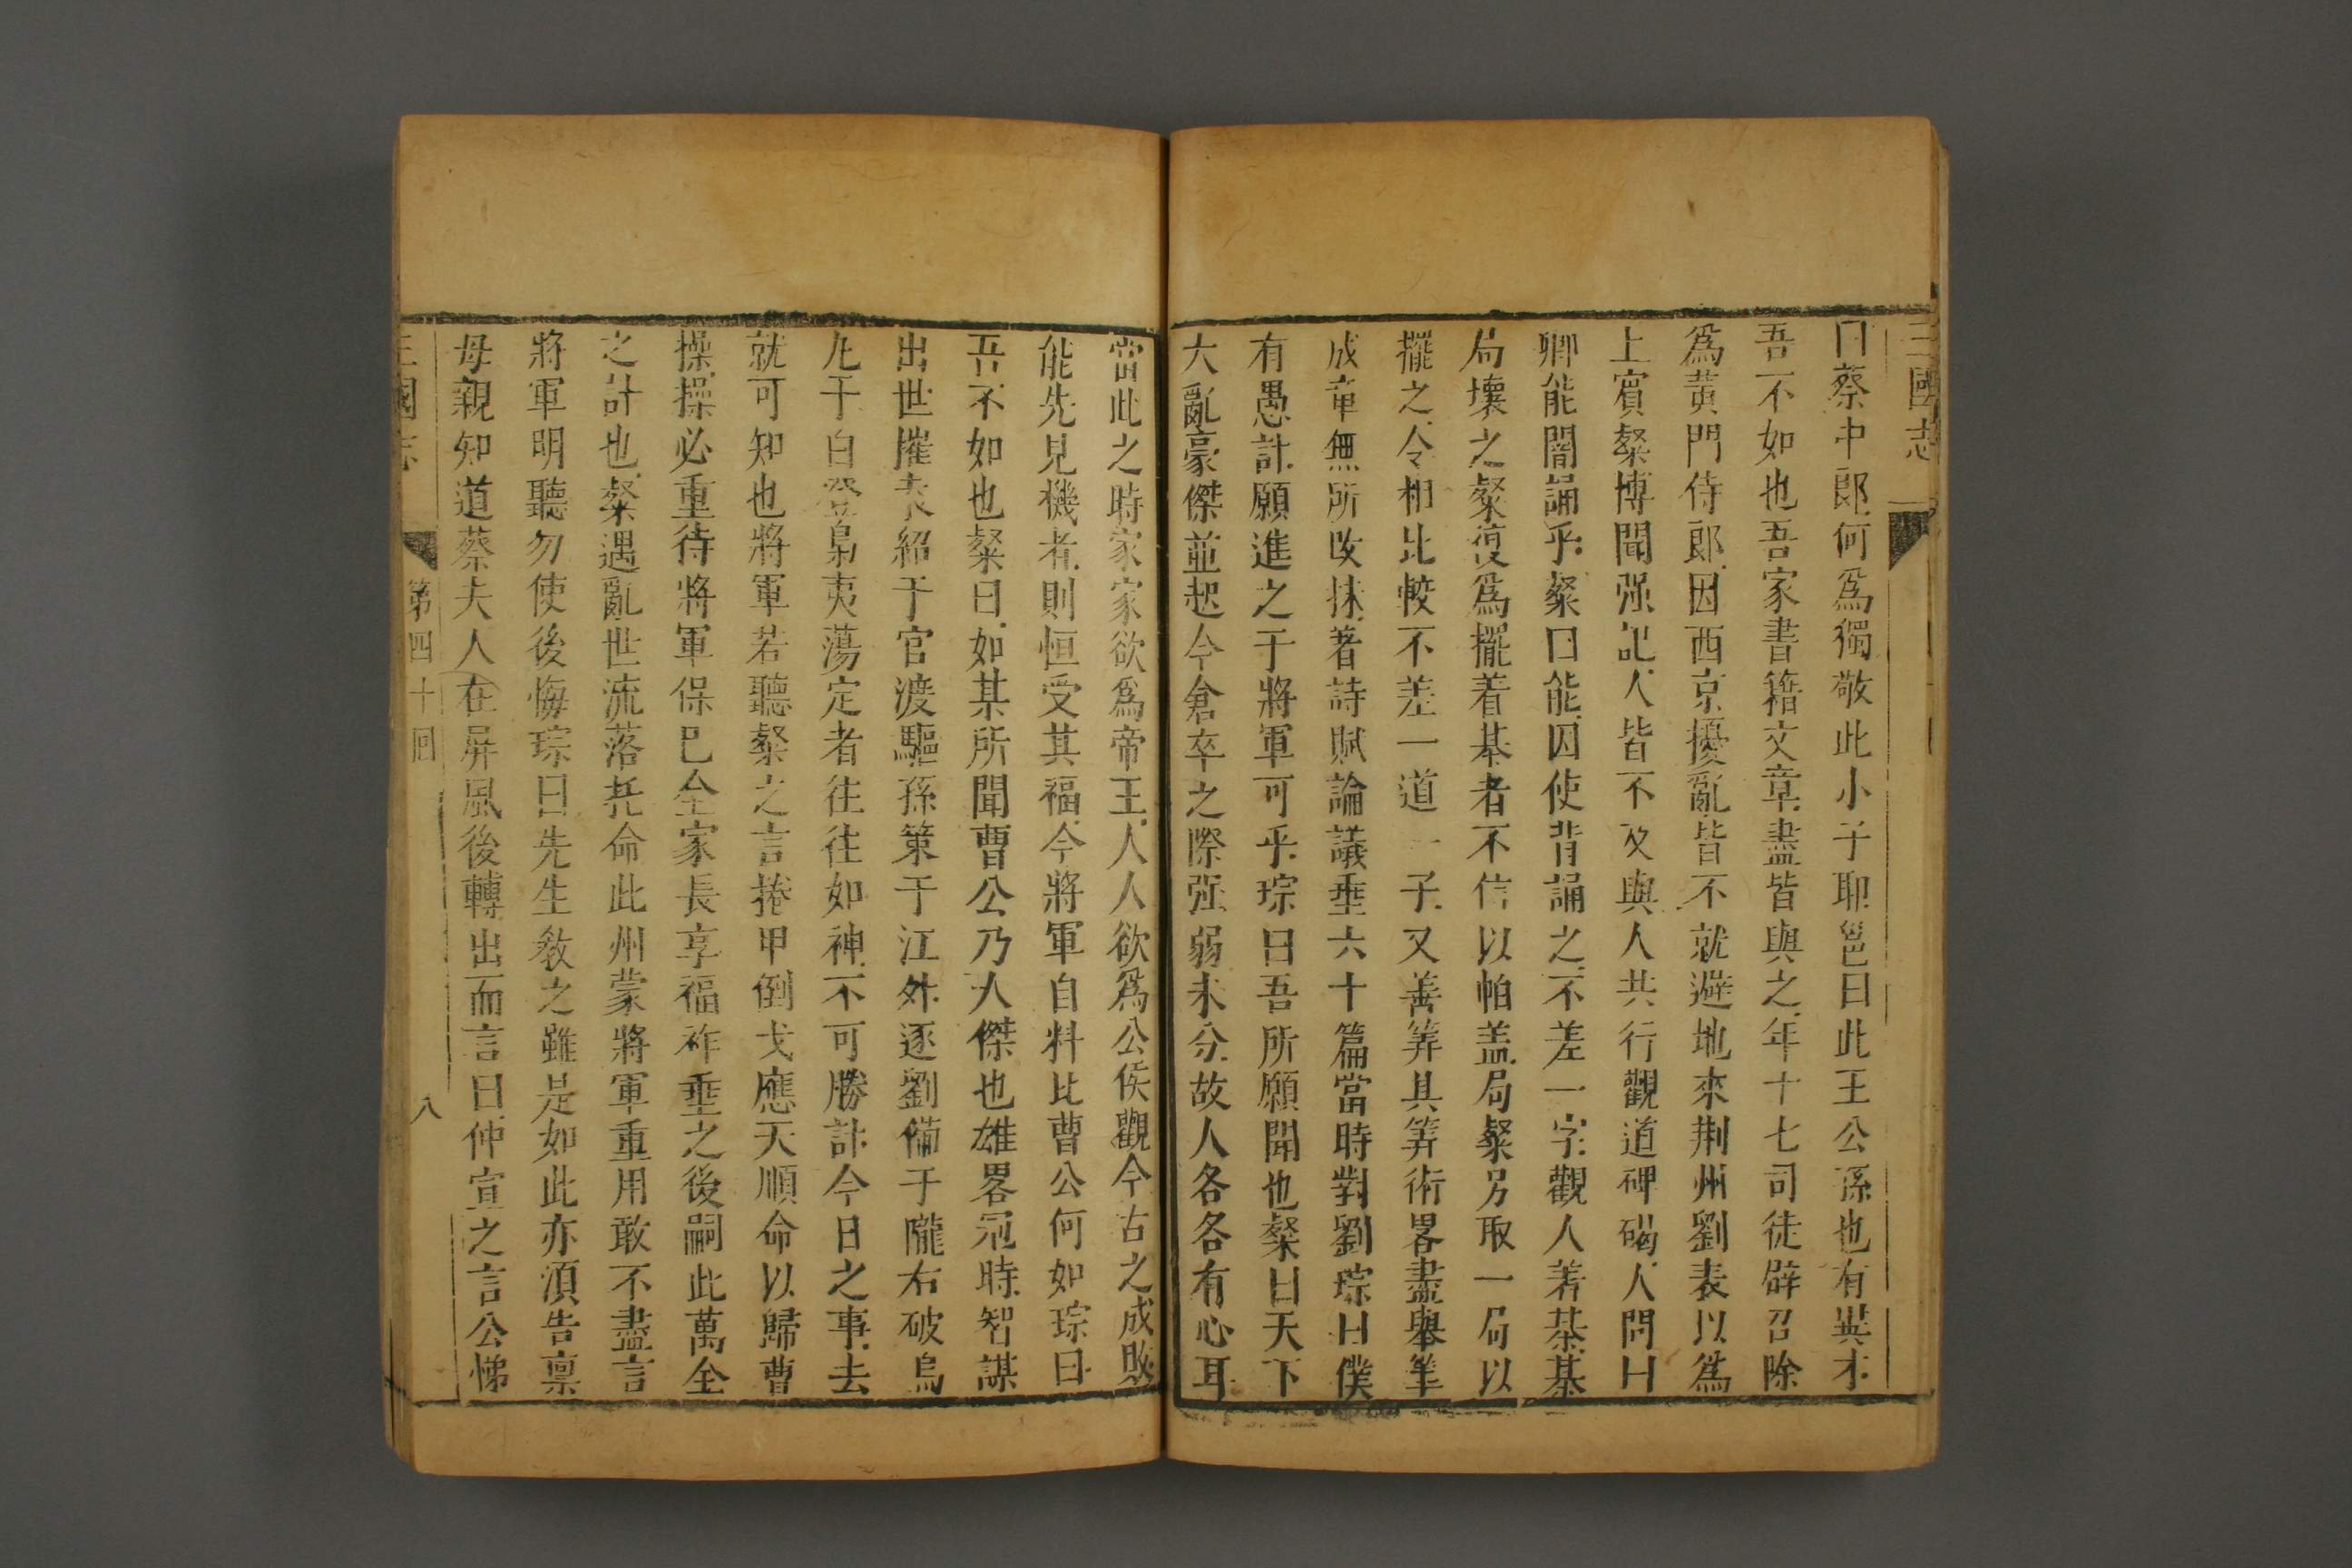 三國志
曰蔡中郎何爲獨敬此小子耶邕曰此王公孫也有異才
吾不如也吾家書籍文章盡皆與之年十七司徒辟召除
爲黄門侍郎因西京擾亂皆不就避地來荆州劉表以爲
上賓粲博聞强記人皆不及與人共行觀道碑碣人問曰
卿能闇誦乎粲曰能因使背誦之不差一字觀人着棊棊
局壞之粲復爲擺着棊者不信以帕盖局粲另取一局以
擺之令相比較不差一道一子又善筭其筭術畧盡舉筆
成章無所改抹著詩賦論議垂六十篇當時對劉琮曰僕
有愚計願進之于將軍可乎琮曰吾所願聞也粲曰天下
大亂豪傑並起今倉卒之際强弱未分故人各各有心耳
當此之時家家欲爲帝王人人欲爲公侯觀今古之成敗
能先見機者則恒受其福今將軍自料比曹公何如琮曰
吾不如也粲曰如某所聞曹公乃人傑也雄畧冠時智謀
出世摧袁紹于官渡驅孫策于江外逐劉備于隴右破烏
丸于白登梟夷蕩定者往往如神不可勝計今日之事去
就可知也將軍若聽粲之言捲甲倒戈應天順命以歸曹
操操必重待將軍保已全家長享福祚垂之後嗣此萬全
之計也粲遇亂世流落托命此州蒙將軍重用敢不盡言
將軍明聽勿使後悔琮曰先生教之雖是如此亦須告禀
母親知道蔡夫人在屏風後轉出而言曰仲宣之言公悌
三國志 第四十回 八